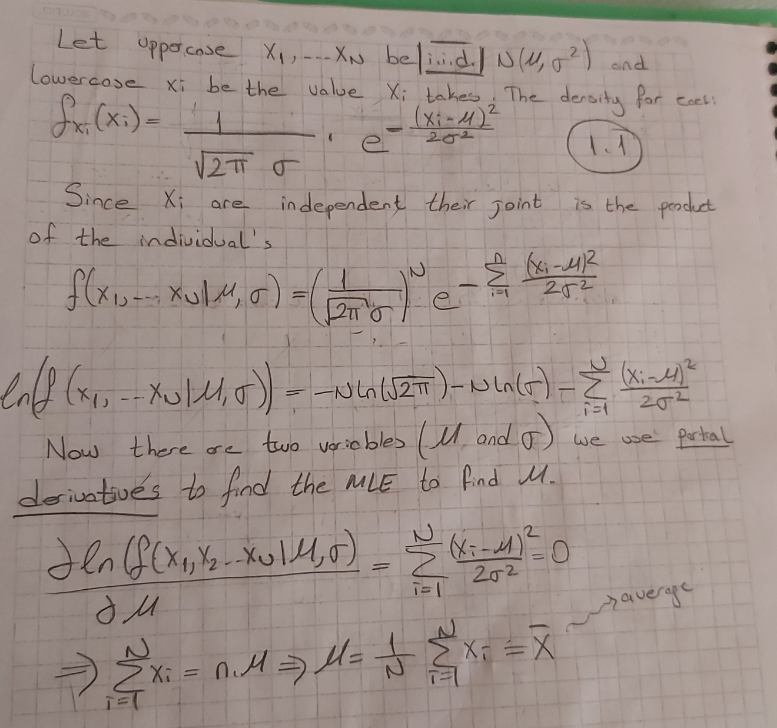 Let uppercase X₁, ... X_N be i.i.d. N(μ, σ²) and
lowercase xᵢ be the value Xᵢ takes. The density for each:
f_{xᵢ}(xᵢ) = 1/(√2π σ) · e^{-(xᵢ-μ)²/2σ²} (1.1)
Since Xᵢ are independent their joint is the product
of the individual's
f(x₁, ... x_N|μ, σ) = (1/(√2π σ))^N e^{-∑_{i=1}^{n} (xᵢ-μ)²/2σ²}
ln(f(x₁, ... x_N|μ, σ)) = -N ln(√2π) - N ln(σ) - ∑_{i=1}^{N} (xᵢ-μ)²/2σ²
Now there are two variables (μ and σ) we use partial
derivatives to find the MLE to find μ.
∂ln(f(x₁, x₂ ... x_N|μ, σ)/∂μ = ∑_{i=1}^{N} (xᵢ-μ)²/2σ² = 0
→ average
⇒ ∑_{i=1}^{N} xᵢ = n.μ ⇒ μ = 1/N ∑_{i=1}^{N} xᵢ = x̄